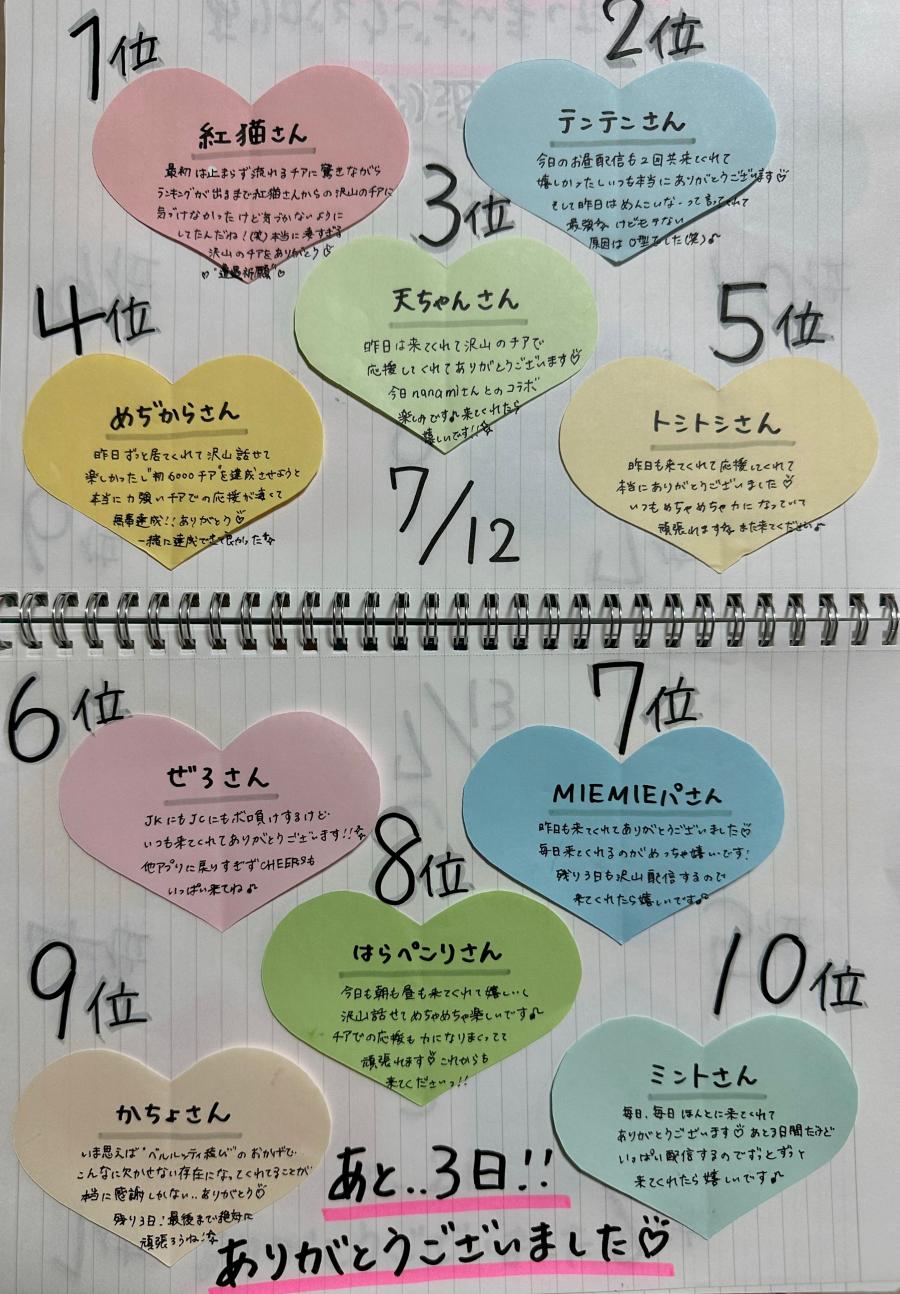 1位
紅猫さん
最初は止まらず流れるチアに驚きながら
ランキングが出るまで紅猫さんからの沢山のチアに
気づけなかったけど気づかないように
してたんだね!(笑)本当に凄すぎる
沢山のチアをありがとう♡
♡"遭遇祈願"♡
2位
テンテンさん
今日のお昼配信も2回共来てくれて
嬉しかったしいつも本当にありがとうございます♡
そして昨日はめんこいな〜って言ってくれて
最強な けどモテない
原因はO型でした(笑)♪
3位
天ちゃんさん
昨日は来てくれて沢山のチアで
応援してくれてありがとうございます♡
今日nanamiさんとのコラボ
楽しみです♫来てくれたら
嬉しいです!!☆
4位
めぢからさん
昨日ずっと居てくれて沢山話せて
楽しかったし"初6000チア"を達成させようと
本当に力強いチアでの応援が凄くて
無事達成!!ありがとう♡
一緒に達成できて良かった☆
5位
トシトシさん
昨日も来てくれて応援してくれて
本当にありがとうございました♡
いつもめちゃめちゃ力になっていて
頑張れます☆また来てください♫
7/12
6位
ぜろさん
JKにもJCにもボロ負けするけど
いつも来てくれてありがとうございます!!☆
他アプリに戻りすぎずCHEERSも
いっぱい来てね♫
7位
MIEMIEパさん
昨日も来てくれてありがとうございました♡
毎日来てくれるのがめっちゃ嬉しいです!
残り3日も沢山配信するので
来てくれたら嬉しいです♫
8位
はらペンリさん
今日も朝も昼も来てくれて嬉しいし
沢山話せてめちゃめちゃ楽しいです♫
チアでの応援も力になりまくってて
頑張れます♡これからも
来てくださいっ!!
9位
かちょさん
いま思えば"ベルルッティ結び"のおかげで
こんなに欠かせない存在になってくれてることが
本当に感謝しかない..ありがとう♡
残り3日!最後まで絶対に
頑張ろうね!☆
10位
ミントさん
毎日、毎日ほんとに来てくれて
ありがとうございます♡あと3日間だけど
いっぱい配信するのでずっとずっと
来てくれたら嬉しいです♫
あと..3日!!
ありがとうございました♡